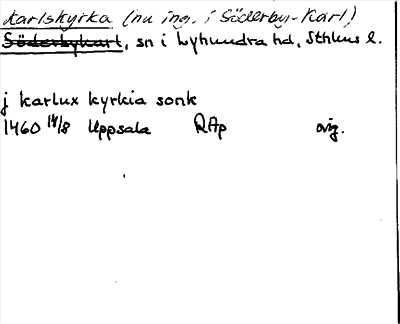 Karlskyrka (nu ing. i Söderby-Karl)
Söderbykarl, sn i Lyhundra hd, Sthlms l.
j karlux kyrkia sonk
1460 14/8 Uppsala RAp orig.